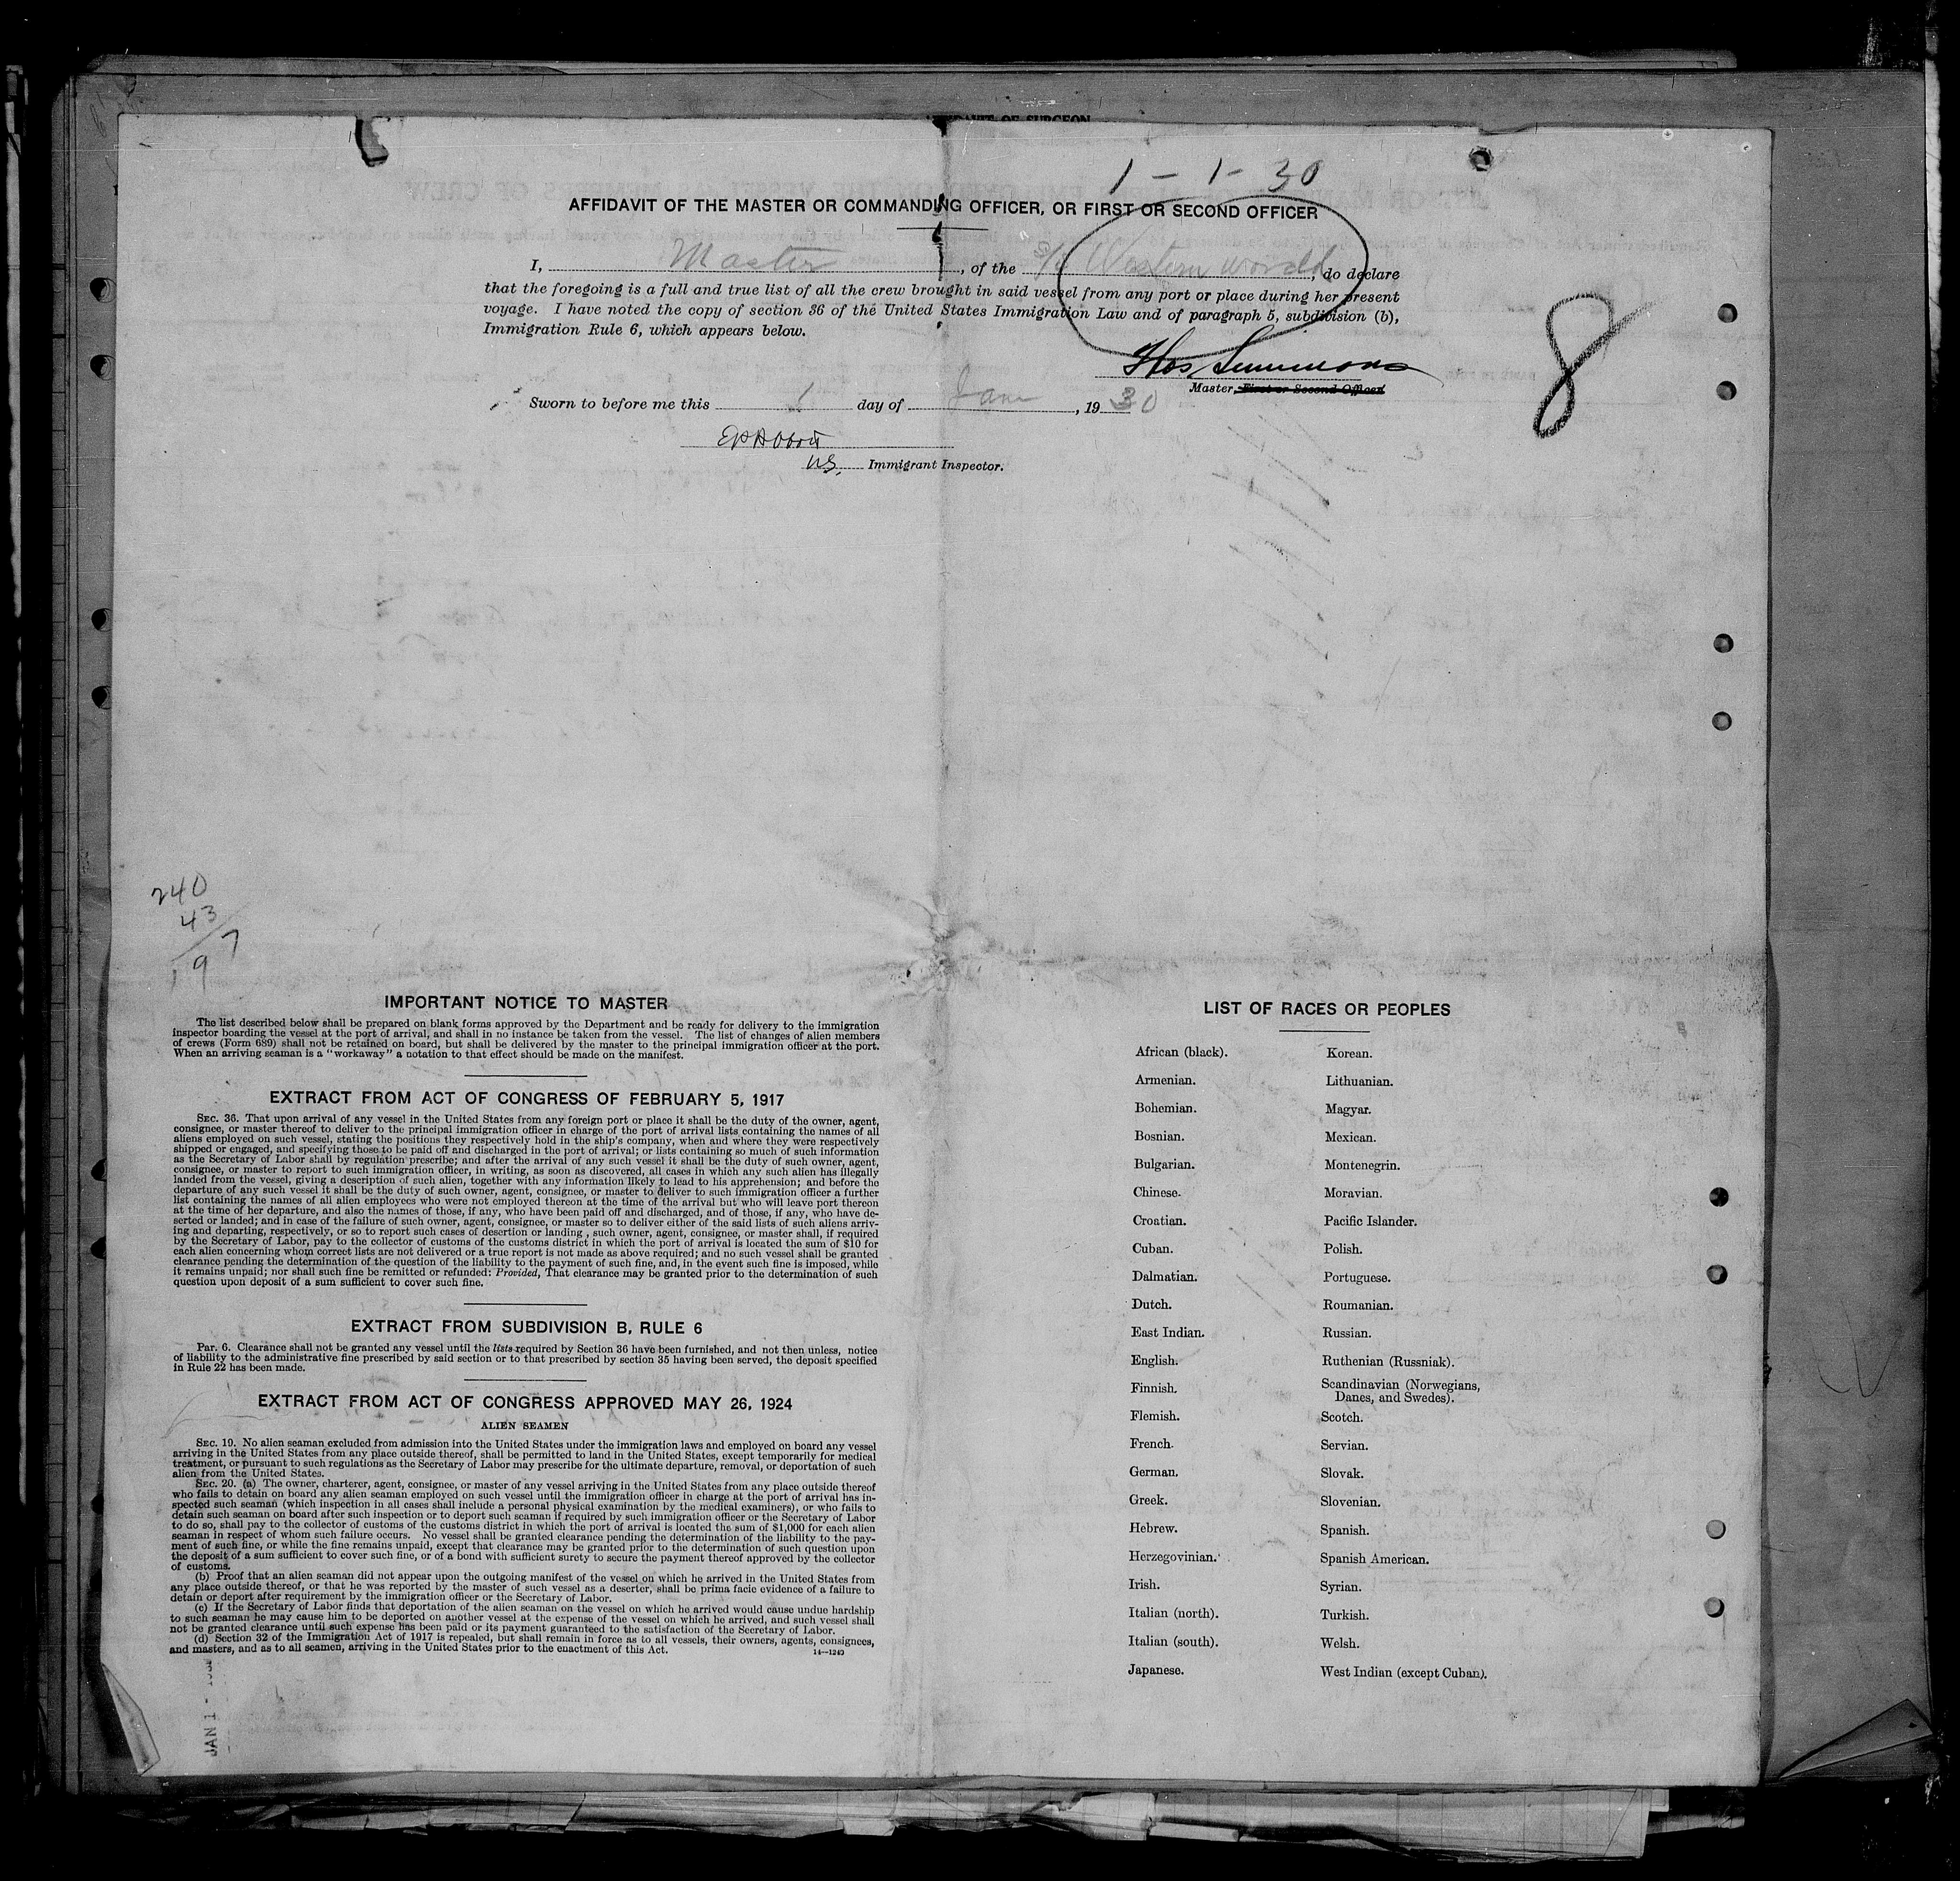 AFFIDAVIT OF SURGEON
1 - 1 - 30
AFFIDAVIT OF THE MASTER OR COMMANDING OFFICER, OR FIRST OR SECOND OFFICER
I, Master, of the S/S Western World, do declare
that the foregoing is a full and true list of all the crew brought in said vessel from any port or place during her present
voyage. I have noted the copy of section 36 of the United States Immigration Law and of paragraph 5, subdivision (b),
Immigration Rule 6, which appears below.
8
Simmons
Master, First or Second Officer
Sworn to before me this 1 day of Jan, 1930
US. Immigrant Inspector.
240
43
197
IMPORTANT NOTICE TO MASTER
The list described below shall be prepared on blank forms approved by the Department and be ready for delivery to the immigration
inspector boarding the vessel at the port of arrival, and shall in no instance be taken from the vessel. The list of changes of alien members
of crews (Form 689) shall not be retained on board, but shall be delivered by the master to the principal immigration officer at the port.
When an arriving seaman is a "workaway" a notation to that effect should be made on the manifest.
EXTRACT FROM ACT OF CONGRESS OF FEBRUARY 5, 1917
SEC. 36. That upon arrival of any vessel in the United States from any foreign port or place it shall be the duty of the owner, agent,
consignee, or master thereof to deliver to the principal immigration officer in charge of the port of arrival lists containing the names of all
aliens employed on such vessel, stating the positions they respectively hold in the ship's company, when and where they were respectively
shipped or engaged, and specifying those to be paid off and discharged in the port of arrival; or lists containing so much of such information
as the Secretary of Labor shall by regulation prescribe; and after the arrival of any such vessel it shall be the duty of such owner, agent,
consignee, or master to report to such immigration officer, in writing, as soon as discovered, all cases in which any such alien has illegally
landed from the vessel, giving a description of such alien, together with any information likely to lead to his apprehension; and before the
departure of any such vessel it shall be the duty of such owner, agent, consignee, or master to deliver to such immigration officer a further
list containing the names of all alien employees who were not employed thereon at the time of the arrival but who will leave port thereon
at the time of her departure, and also the names of those, if any, who have been paid off and discharged, and of those, if any, who have de-
serted or landed; and in case of the failure of such owner, agent, consignee, or master so to deliver either of the said lists of such aliens arriv-
ing and departing, respectively, or so to report such cases of desertion or landing, such owner, agent, consignee, or master shall, if required
by the Secretary of Labor, pay to the collector of customs of the customs district in which the port of arrival is located the sum of $10 for
each alien concerning whom correct lists are not delivered or a true report is not made as above required; and no such vessel shall be granted
clearance pending the determination of the question of the liability to the payment of such fine, and, in the event such fine is imposed, while
it remains unpaid; nor shall such fine be remitted or refunded: Provided, That clearance may be granted prior to the determination of such
question upon deposit of a sum sufficient to cover such fine.
EXTRACT FROM SUBDIVISION B, RULE 6
Par. 6. Clearance shall not be granted any vessel until the lists required by Section 36 have been furnished, and not then unless, notice
of liability to the administrative fine prescribed by said section or to that prescribed by section 35 having been served, the deposit specified
in Rule 22 has been made.
EXTRACT FROM ACT OF CONGRESS APPROVED MAY 26, 1924
ALIEN SEAMEN
SEC. 19. No alien seaman excluded from admission into the United States under the immigration laws and employed on board any vessel
arriving in the United States from any place outside thereof, shall be permitted to land in the United States, except temporarily for medical
treatment, or pursuant to such regulations as the Secretary of Labor may prescribe for the ultimate departure, removal, or deportation of such
alien from the United States.
SEC. 20. (a) The owner, charterer, agent, consignee, or master of any vessel arriving in the United States from any place outside thereof
who fails to detain on board any alien seaman employed on such vessel until the immigration officer in charge at the port of arrival has in-
spected such seaman (which inspection in all cases shall include a personal physical examination by the medical examiners), or who fails to
detain such seaman on board after such inspection or to deport such seaman if required by such immigration officer or the Secretary of Labor
to do so, shall pay to the collector of customs of the customs district in which the port of arrival is located the sum of $1,000 for each alien
seaman in respect of whom such failure occurs. No vessel shall be granted clearance pending the determination of the liability to the pay-
ment of such fine, or while the fine remains unpaid, except that clearance may be granted prior to the determination of such question upon
the deposit of a sum sufficient to cover such fine, or of a bond with sufficient surety to secure the payment thereof approved by the collector
of customs.
(b) Proof that an alien seaman did not appear upon the outgoing manifest of the vessel on which he arrived in the United States from
any place outside thereof, or that he was reported by the master of such vessel as a deserter, shall be prima facie evidence of a failure to
detain or deport after requirement by the immigration officer or the Secretary of Labor.
(c) If the Secretary of Labor finds that deportation of the alien seaman on the vessel on which he arrived would cause undue hardship
to such seaman he may cause him to be deported on another vessel at the expense of the vessel on which he arrived, and such vessel shall
not be granted clearance until such expense has been paid or its payment guaranteed to the satisfaction of the Secretary of Labor.
(d) Section 32 of the Immigration Act of 1917 is repealed, but shall remain in force as to all vessels, their owners, agents, consignees,
and masters, and as to all seamen, arriving in the United States prior to the enactment of this Act.
14—1240
JAN 1 -
LIST OF RACES OR PEOPLES
African (black).
Armenian.
Bohemian.
Bosnian.
Bulgarian.
Chinese.
Croatian.
Cuban.
Dalmatian.
Dutch.
East Indian.
English.
Finnish.
Flemish.
French.
German.
Greek.
Hebrew.
Herzegovinian.
Irish.
Italian (north).
Italian (south).
Japanese.
Korean.
Lithuanian.
Magyar.
Mexican.
Montenegrin.
Moravian.
Pacific Islander.
Polish.
Portuguese.
Roumanian.
Russian.
Ruthenian (Russniak).
Scandinavian (Norwegians,
Danes, and Swedes).
Scotch.
Servian.
Slovak.
Slovenian.
Spanish.
Spanish American.
Syrian.
Turkish.
Welsh.
West Indian (except Cuban).